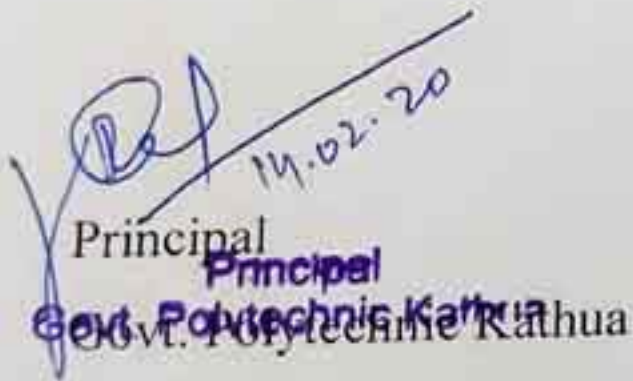 14.02.20
Principal
Principal
Govt. Polytechnic Kathua
Govt. Polytechnic Kathua